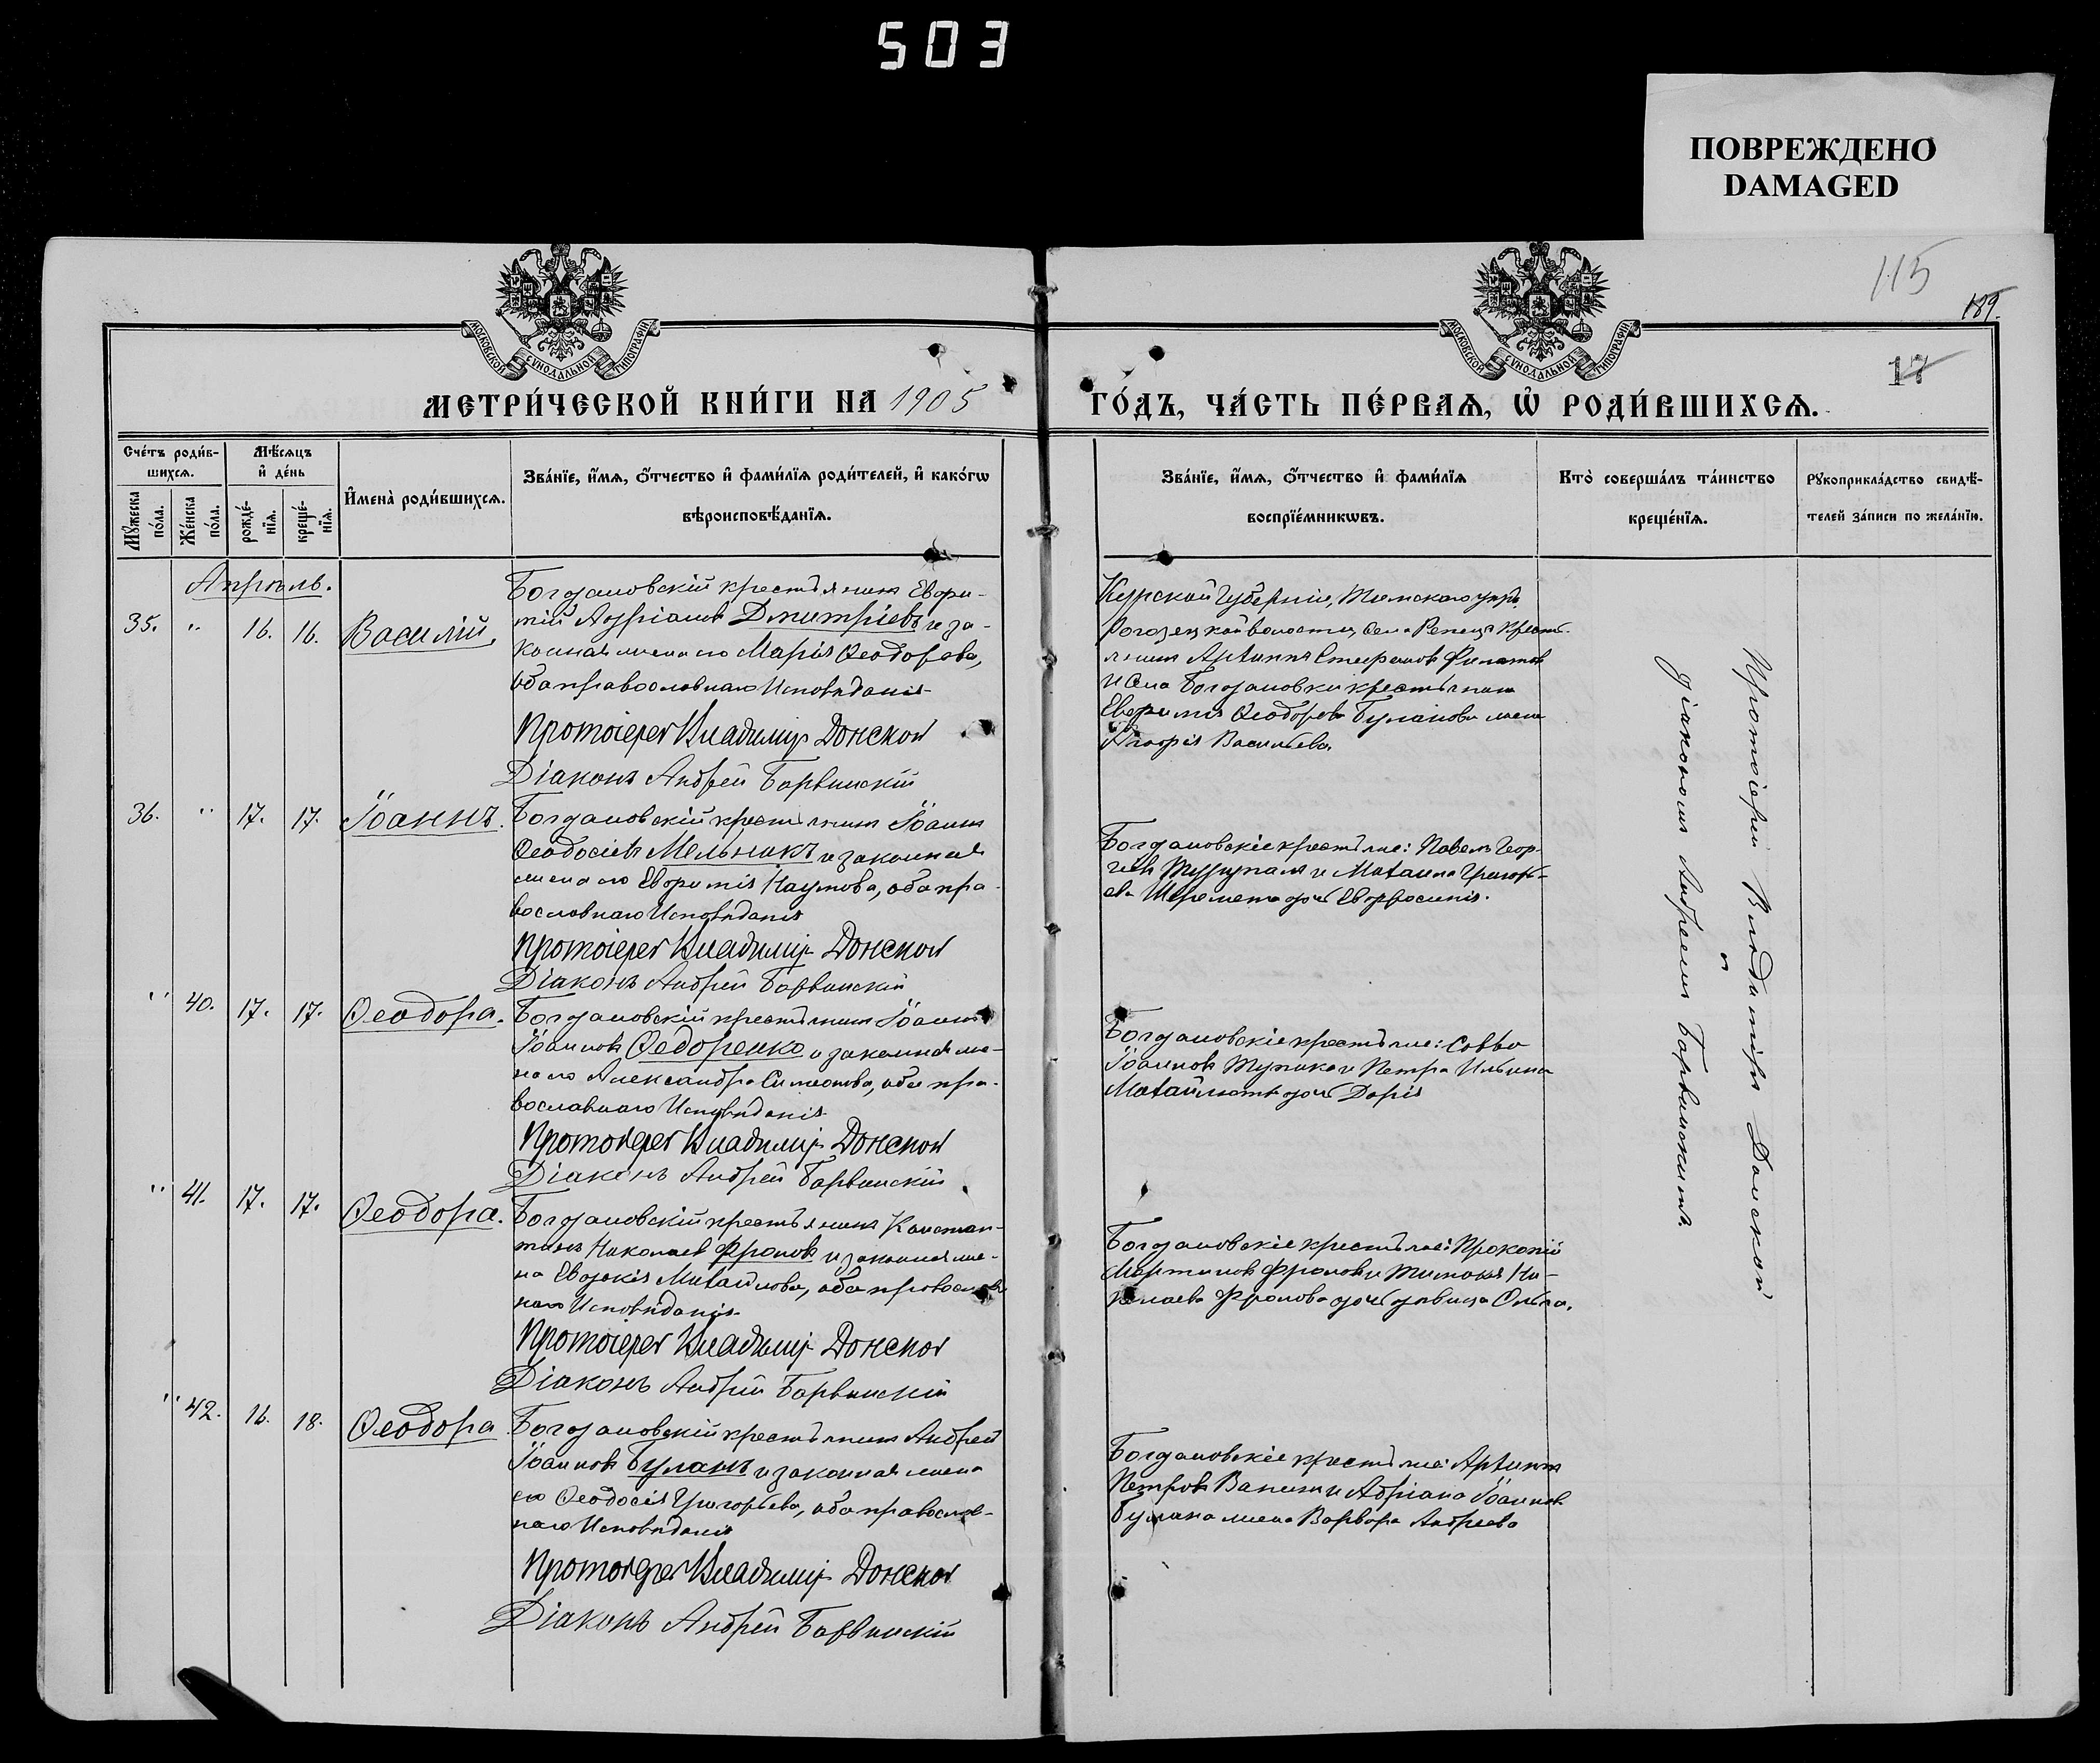 503
ПОВРЕЖДЕНО
DAMAGED
115
189.
17
МОСКОВСКОЙ СѴНОДАЛЬНОЙ ТИПОГРАФІИ
МОСКОВСКОЙ СѴНОДАЛЬНОЙ ТИПОГРАФІИ
МЕТРИ́ЧЕСКОЙ КНИ́ГИ НА 1905 ГО́ДЪ, ЧА́СТЬ ПЕ́РВАѦ, Ѡ РОДИ́ВШИХСѦ.
Сче́тъ роди́в-
шихсѧ.
Мѣ́сѧцъ
и҆ де́нь
Мꙋ́жеска по́ла.
Же́нска по́ла.
рожде́-
нїѧ.
креще́-
нїѧ.
И҆мена̀ роди́вшихсѧ.
Зва́нїе, и҆́мѧ, ѻ҆́тчество и҆ фами́лїѧ роди́телей, и҆ како́гѡ
вѣроисповѣ́данїѧ.
Зва́нїе, и҆́мѧ, ѻ҆́тчество и҆ фами́лїѧ
воспрїе́мникѡвъ.
Кто̀ соверша́лъ та́инство
креще́нїѧ.
Рꙋкоприкла́дство свидѣ́-
телей за́писи по жела́нїю.
Апрѣль.
35. " 16. 16. Василій.
Богдановскій крестьянинъ Евфи-
мій Адріановъ Дмитріевъ и за-
конная жена его Марія Ѳеодорова,
оба православнаго Исповѣданія
Протоіерей Владиміръ Донской
Діаконъ Андрей Барвинскій
Курской Губерніи, Тимскаго уѣзда,
Рогозецкой волости, Села Репеца Кресть-
янинъ Архиппъ Стефановъ Филатовъ
и Села Богдановки крестьянина
Евфимія Ѳеодорова Буланова жена
Васильева.
36. " 17. 17. Іоаннъ.
Богдановскій крестьянинъ Іоаннъ
Ѳеодосіевъ Мельникъ и законная
жена его Евфимія Наумова, оба пра-
вославнаго Исповѣданія
Протоіерей Владиміръ Донской
Діаконъ Андрей Барвинскій
Богдановскіе крестьяне: Павелъ Геор-
гіевъ и Михаила Григорь-
ева Шеремета дочь Евфросинія.
" 40. 17. 17. Ѳеодора.
Богдановскій крестьянинъ Іоаннъ
Іоанновъ Ѳедоренко и законная же-
на его Александра Симеонова, оба пра-
вославнаго Исповѣданія
Протоіерей Владиміръ Донской
Діаконъ Андрей Барвинскій
Богдановскіе крестьяне: Савва
Іоанновъ Тупика и Петра Ильина
дочь Дарія
" 41. 17. 17. Ѳеодора.
Богдановскій крестьянинъ Констан-
тинъ Николаевъ Фроловъ и законная же-
на Евдокія Михайлова, оба православ-
наго Исповѣданія
Протоіерей Владиміръ Донской
Діаконъ Андрей Барвинскій
Богдановскіе крестьяне: Прокопій
Мартиновъ Фроловъ и Ни-
колаева Фролова дочь дѣвица Ольга.
" 42. 16. 18. Ѳеодора
Богдановскій крестьянинъ Андрей
Іоанновъ Буланъ и законная жена
его Ѳеодосія Григорьева, оба православ-
наго Исповѣданія
Протоіерей Владиміръ Донской
Діаконъ Андрей Барвинскій
Богдановскіе крестьяне: Архиппъ
Петровъ и Адріана Іоаннова
Булана жена Варвара Андреева
Протоіерей Владиміръ Донской
съ
діакономъ Андреемъ Барвинскимъ.